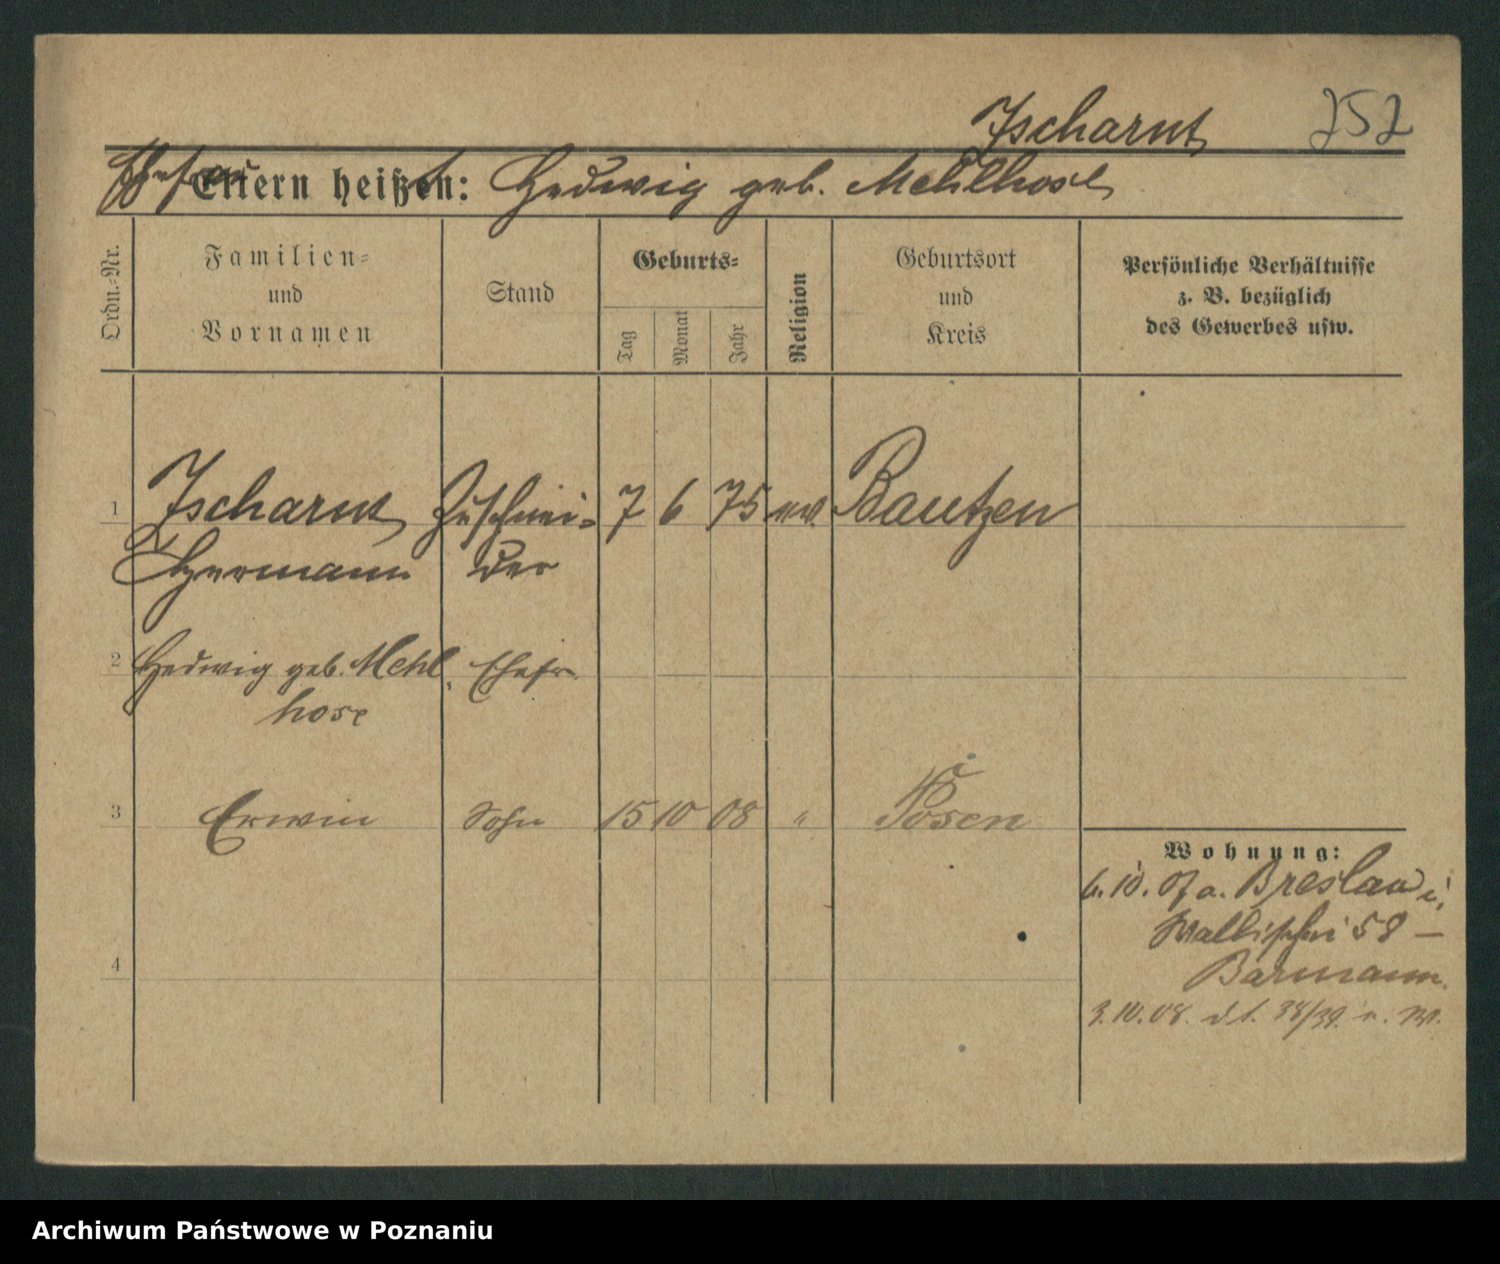 Tscharnt 252
Ehefrau Eltern heißen: Hedwig geb. Mehlhose
Ordn.-Nr.
Familien- und Vornamen
Stand
Geburts-
Tag
Monat
Jahr
Religion
Geburtsort und Kreis
Persönliche Verhältnisse
z. B. bezüglich
des Gewerbes usw.
1 Tscharnt Zuschnei- 7 6 75 ev. Bautzen
Hermann der
2 Hedwig geb. Mehl Ehefr.
hose
3 Erwin Sohn 15 10 08 " Posen
Wohnung:
6.10.07 a. Breslau
Wallischei 58 —
Barmann.
4
3.10.08. 38/39.
Archiwum Państwowe w Poznaniu